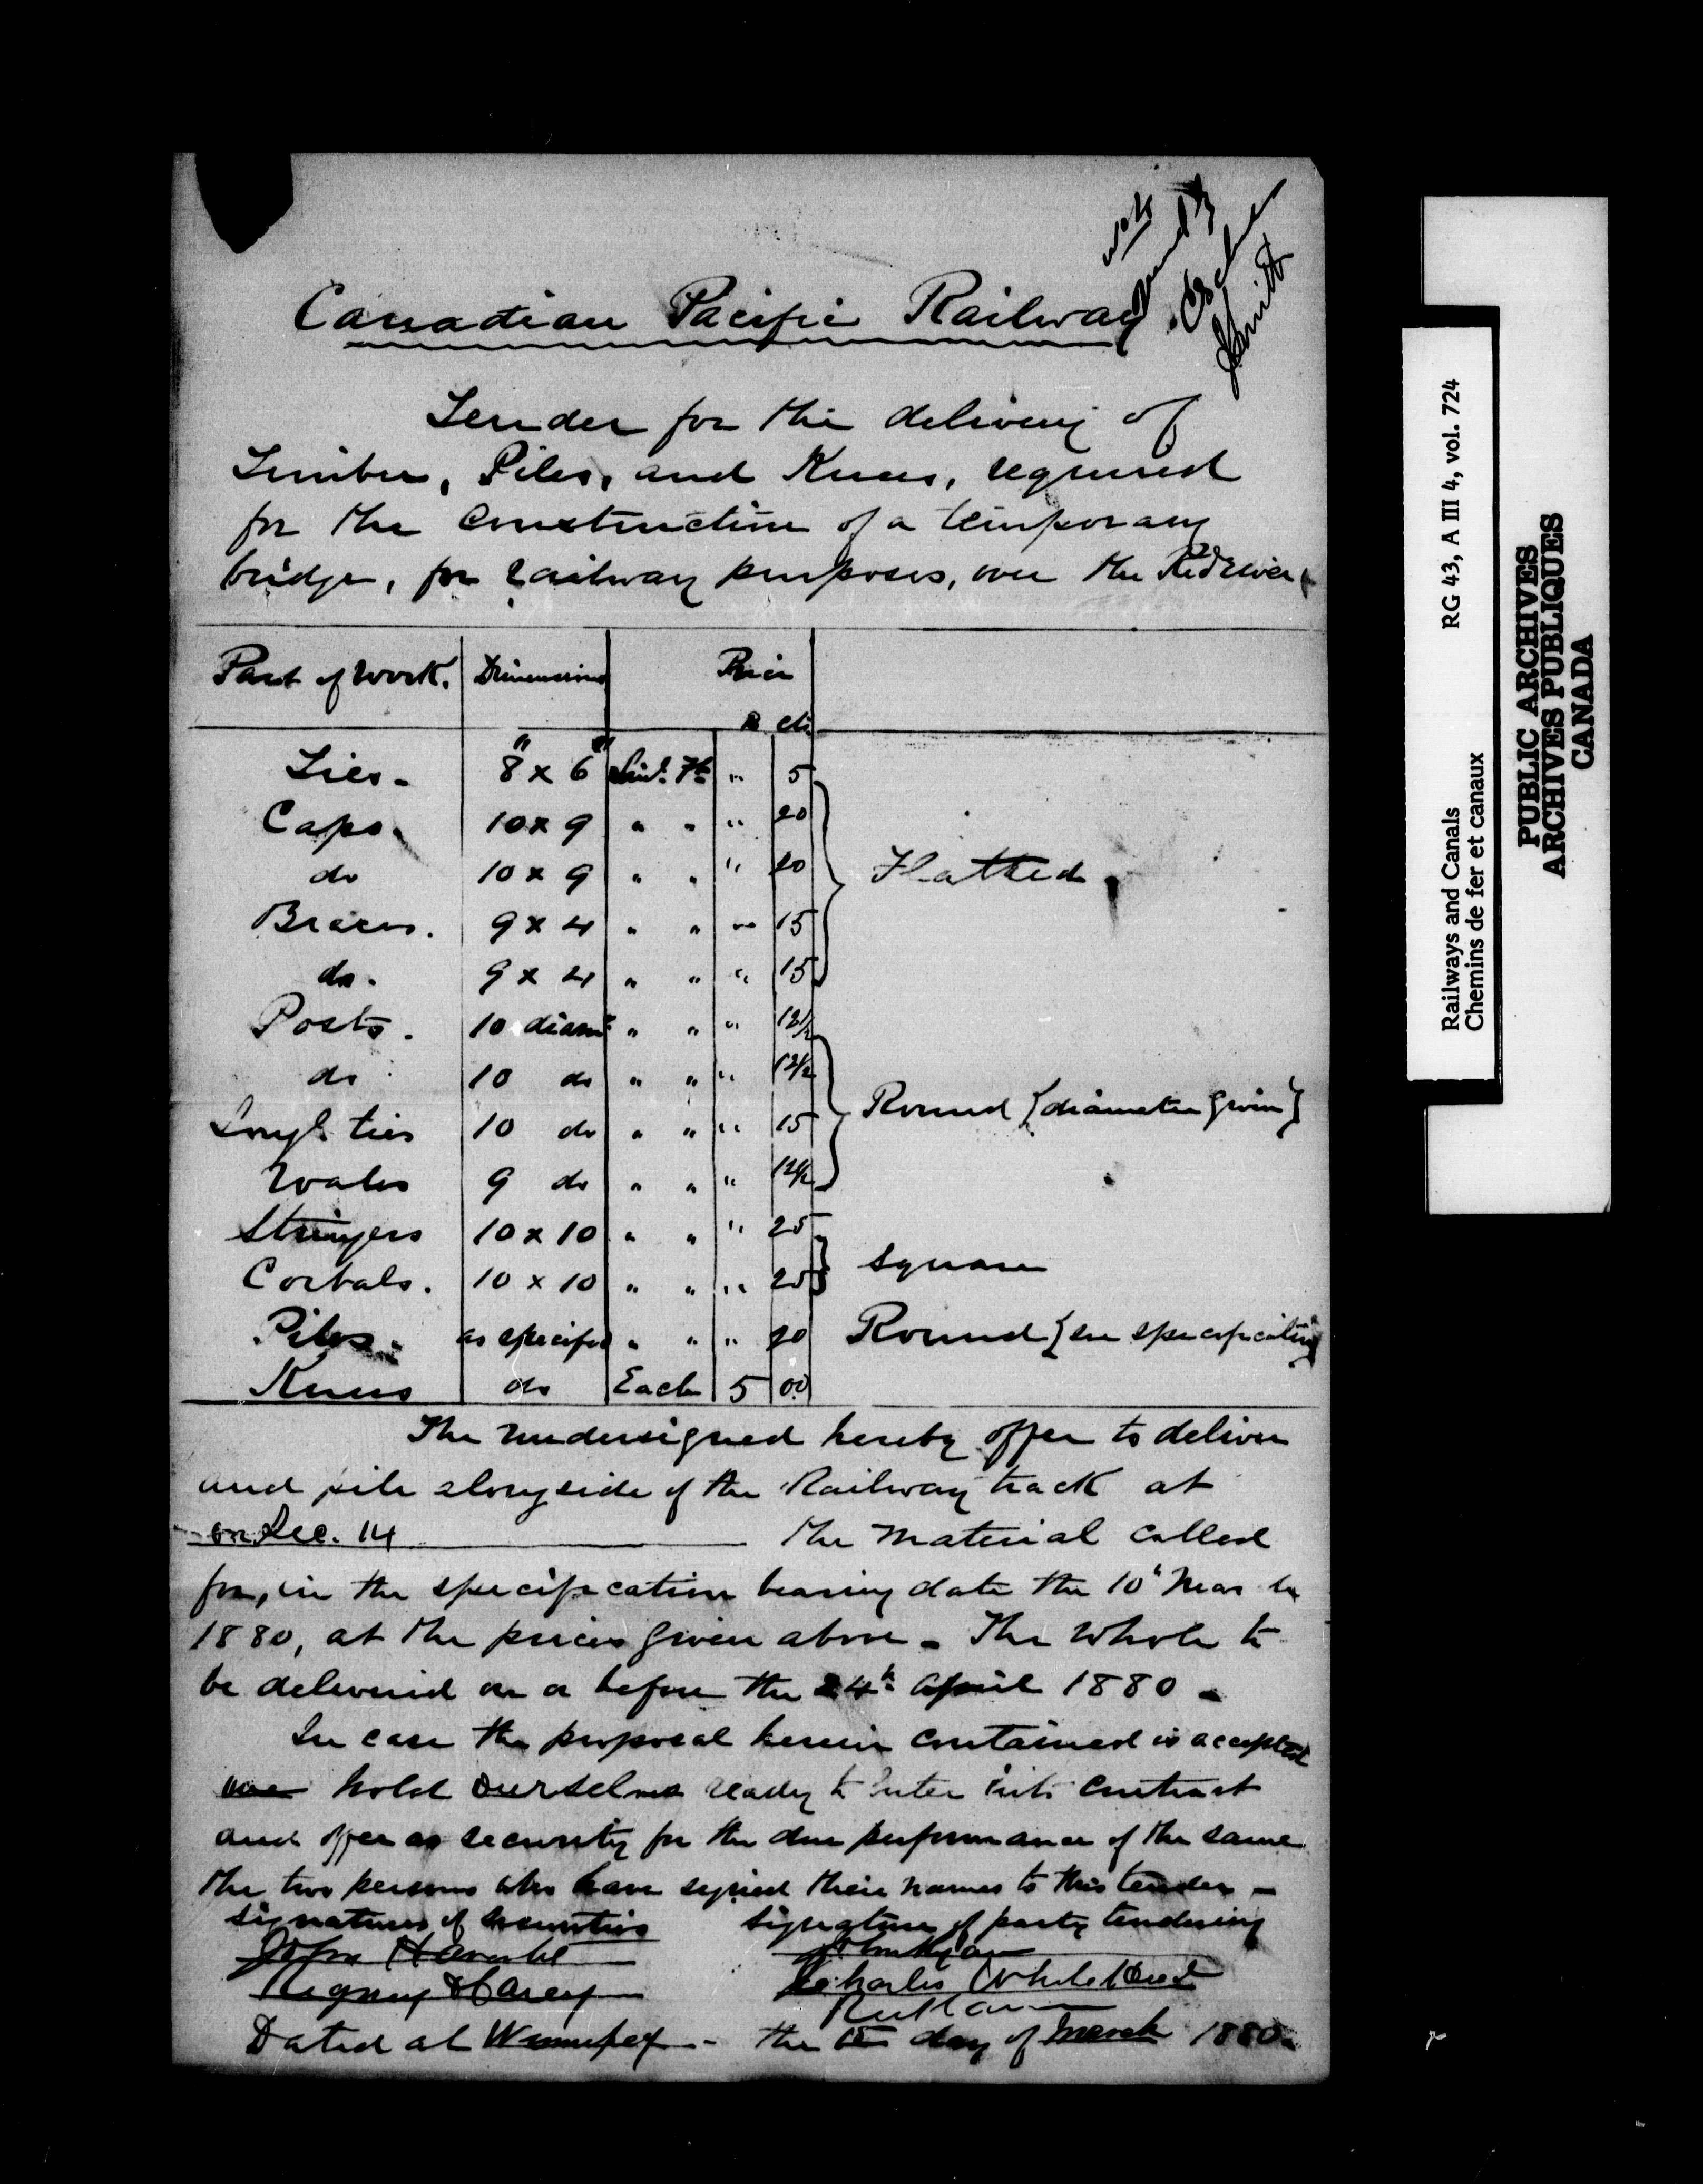 Canadian Pacific Railway
Tender for the delivery of
Timber, Piles, and Knees, required
for the Construction of a temporary
bridge, for railway purposes, over the Red River.
Part of Work. Dimensions Price
$ cts.
Ties - 8" x 6" Lin'l Ft " 5
Caps. 10 x 9 " " " 20
do 10 x 9 " " " 20
Flatted.
Braces. 9 x 4 " " " 15
do. 9 x 4 " " " 15
Posts. 10 diam " " " 12½
do 10 do " " " 12½
Longl. ties 10 do " " " 15
Round {diameter given}
Wales 9 do " " " 12½
Stringers 10 x 10 " " " 25
Corbals. 10 x 10 " " " 25
Square
Piles. as specified " " " 20 Round {see specification}
Knees do Each 5 00
The Undersigned hereby offer to deliver
and pile alongside of the Railway track at
on Sec. 14 the Material called
for, in the specification bearing date the 10th March
1880, at the prices given above - The Whole to
be delivered on or before the 24th April 1880 -
In case the proposal herein contained is accepted
we hold ourselves ready to enter into contract
and offer as security for the due performance of the same
the two persons who have signed their names to this tender -
Signatures of Securities Signature of party tendering
John
Charles Whitehead
Ruttan
Dated at Winnipeg - the 15 day of March 1880.
Railways and Canals RG 43, A III 4, vol. 724
Chemins de fer et canaux
PUBLIC ARCHIVES
ARCHIVES PUBLIQUES
CANADA